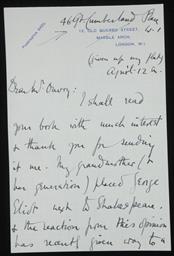 46 Gt Cumberland Place
W.1
12, OLD QUEBEC STREET,
MARBLE ARCH,
LONDON, W.1
(Given up my flat)
April 12
I shall read
your book with much interest
& thank you for sending
it me. My grandmother (&
her generation) placed George
Eliot next to Shakespeare.
& the reaction from this opinion
has recently given way to a